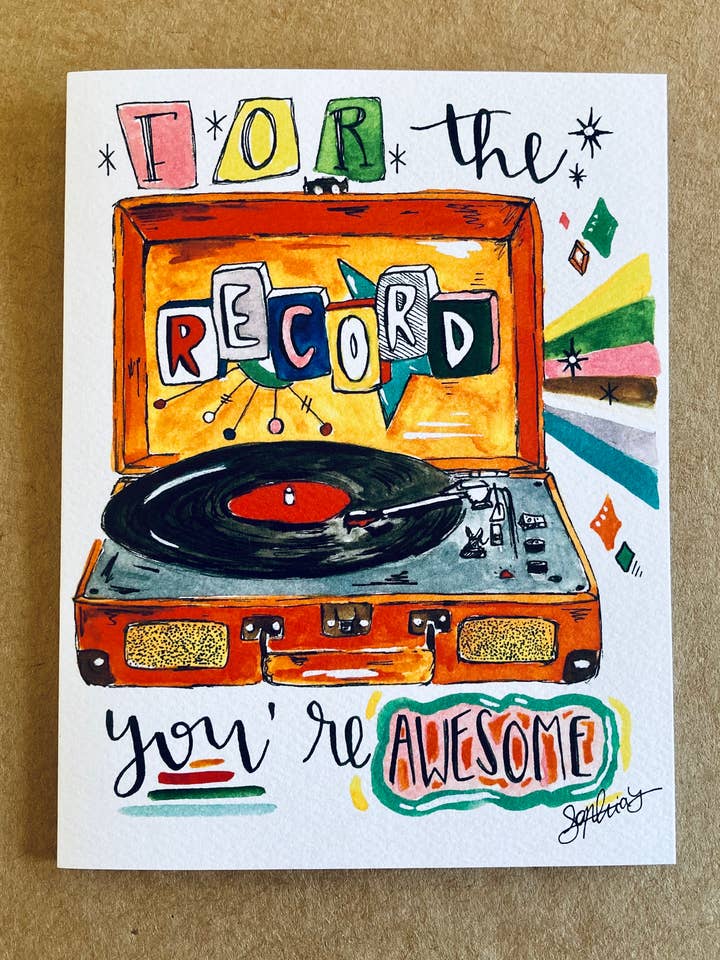 FOR the
RECORD
you're AWESOME